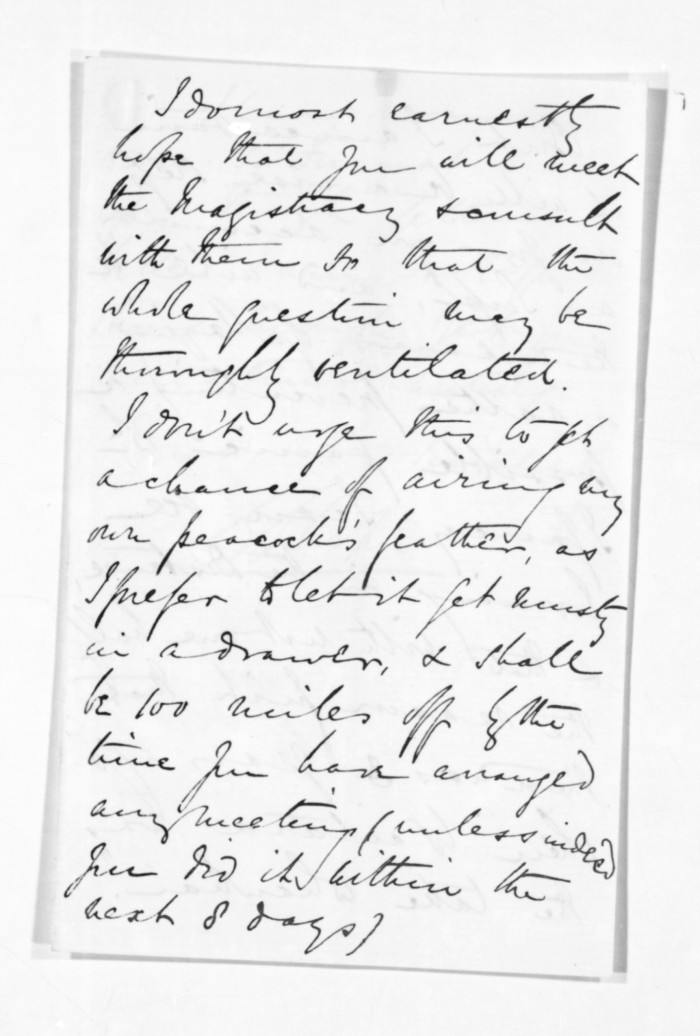 I do most earnestly
hope that you will meet
the Magistracy & consult
with them so that the
whole question may be
thoroughly ventilated.
I don't urge this to get
a chance of airing my
own peacock's feather, as
I prefer to let it get musty
in a drawer, & shall
be 100 miles off by the
time you have arranged
any meeting (unless indeed
you did it within the
next 8 days)